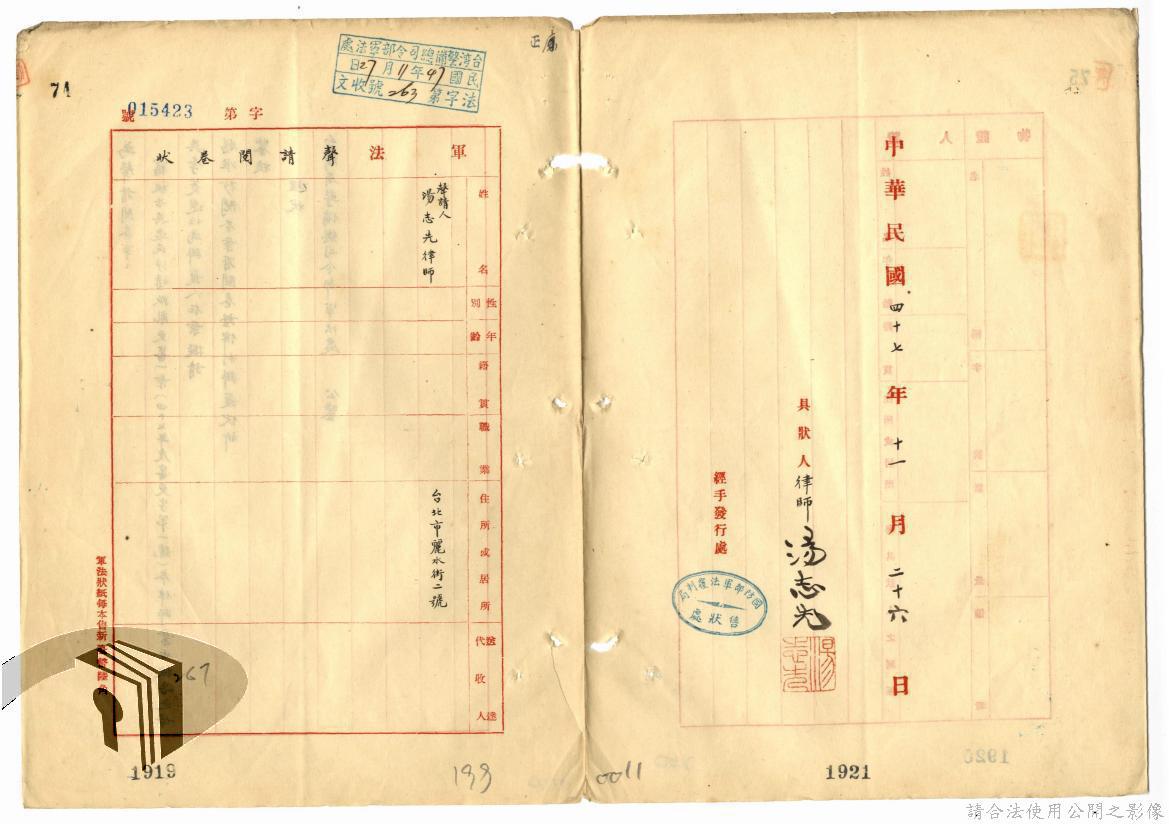 正康
台灣警備總司令部軍法處
民國47年11月27日
法字第263號收文
74
字第015423號
軍法聲請閱卷狀
姓名
聲請人
湯志先律師
性別
年齡
籍貫
職業
住所或居所
台北市麗水街二號
送達代收人
軍法狀紙每本售新臺幣陸角
267
1919
199
中華民國四十七年十一月二十六日
具狀人律師湯志先
湯志先
經手發行處
國防部軍法覆判局
售狀處
0011
1921
請合法使用公開之影像